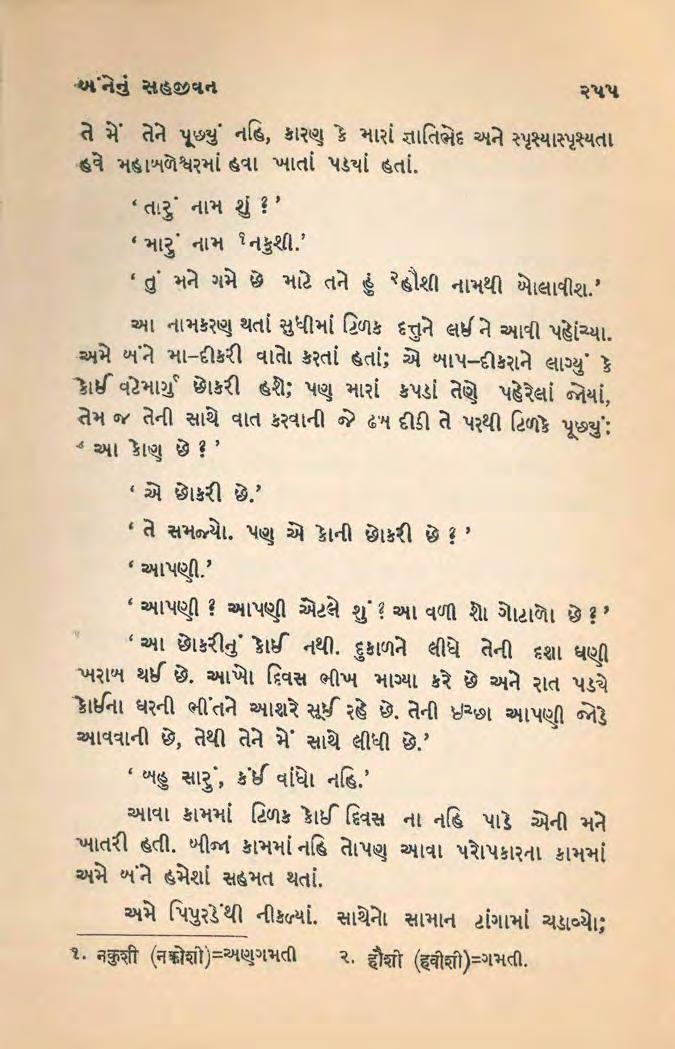 બંનેનું સહજીવન ૨૫૫
તે મેં તેને પૂછ્યું નહિ, કારણ કે મારાં જ્ઞાતિભેદ અને સ્પૃશ્યાસ્પૃશ્યતા
હવે મહાબળેશ્વરમાં હવા ખાતાં પડ્યાં હતાં.
‘ તારું નામ શું ? ’
‘ મારું નામ ૧નકુશી.’
‘ તું મને ગમે છે માટે તને હું ૨હૌશી નામથી બોલાવીશ.’
આ નામકરણ થતાં સુધીમાં ટિળક દત્તુને લઈ ને આવી પહોંચ્યા.
અમે બંને મા–દીકરી વાતો કરતાં હતાં; એ બાપ–દીકરાને લાગ્યું કે
કોઈ વટેમાર્ગુ છોકરી હશે; પણ મારાં કપડાં તેણે પહેરેલાં જોયાં,
તેમ જ તેની સાથે વાત કરવાની જે ઢબ દીઠી તે પરથી ટિળકે પૂછ્યું:
‘ આ કોણ છે ? ’
‘ એ છોકરી છે.’
‘ તે સમજ્યો. પણ એ કોની છોકરી છે ? ’
‘ આપણી.’
‘ આપણી ? આપણી એટલે શું ? આ વળી શો ગોટાળો છે ? ’
‘ આ છોકરીનું કોઈ નથી. દુકાળને લીધે તેની દશા ઘણી
ખરાબ થઈ છે. આખો દિવસ ભીખ માગ્યા કરે છે અને રાત પડ્યે
કોઈના ઘરની ભીંતને આશરે સૂઈ રહે છે. તેની ઇચ્છા આપણી જોડે
આવવાની છે, તેથી તેને મેં સાથે લીધી છે.’
‘ બહુ સારું, કંઈ વાંધો નહિ.’
આવા કામમાં ટિળક કોઈ દિવસ ના નહિ પાડે એની મને
ખાતરી હતી. બીજા કામમાં નહિ તોપણ આવા પરોપકારના કામમાં
અમે બંને હમેશાં સહમત થતાં.
અમે પિપુરડેથી નીકળ્યાં. સાથેનો સામાન ટાંગામાં ચડાવ્યો;
૧. नकुशी (नकोशी)=અણગમતી ૨. हौशी (हवीशी)=ગમતી.